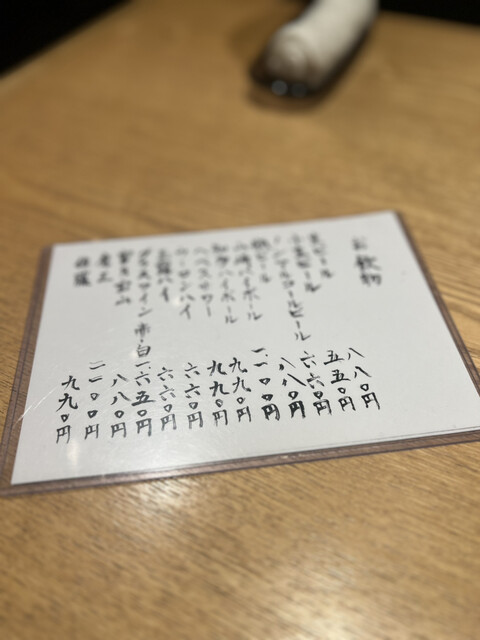 お飲物
生ビール 八八〇円
小生ビール 五五〇円
ノンアルコールビール 六六〇円
瓶ビール 八八〇円
山崎ハイボール 一一〇〇円
知多ハイボール 九九〇円
へベスサワー 九九〇円
ウーロンハイ 六六〇円
ハイ 六六〇円
グラスワイン 赤・白 一六五〇円
富乃宝山 八八〇円
魔王 一一〇〇円
佐藤 九九〇円